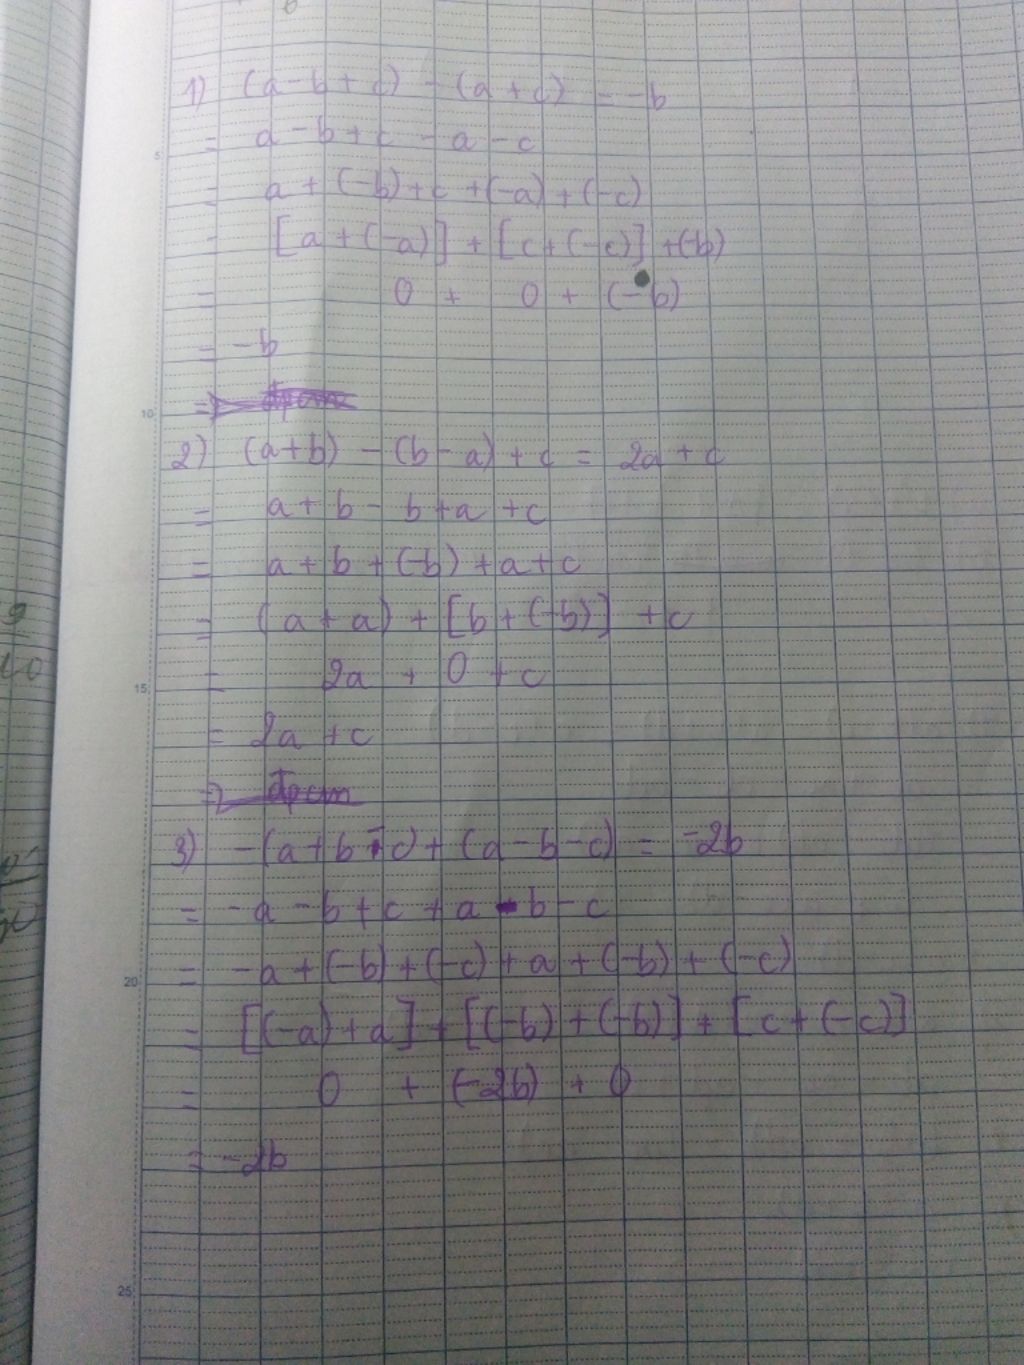 1) (a - b + c) - (a + c) = -b
= a - b + c - a - c
= a + (-b) + c + (-a) + (-c)
= [a + (-a)] + [c + (-c)] + (-b)
= 0 + 0 + (-b)
= -b
2) (a + b) - (b - a) + c = 2a + c
= a + b - b + a + c
= a + b + (-b) + a + c
= (a + a) + [b + (-b)] + c
= 2a + 0 + c
= 2a + c
3) -(a + b - c) + (a - b - c) = -2b
= -a - b + c + a - b - c
= -a + (-b) + (-c) + a + (-b) + (-c)
= [(-a) + a] + [(-b) + (-b)] + [c + (-c)]
= 0 + (-2b) + 0
= -2b
5
10
15
20
25